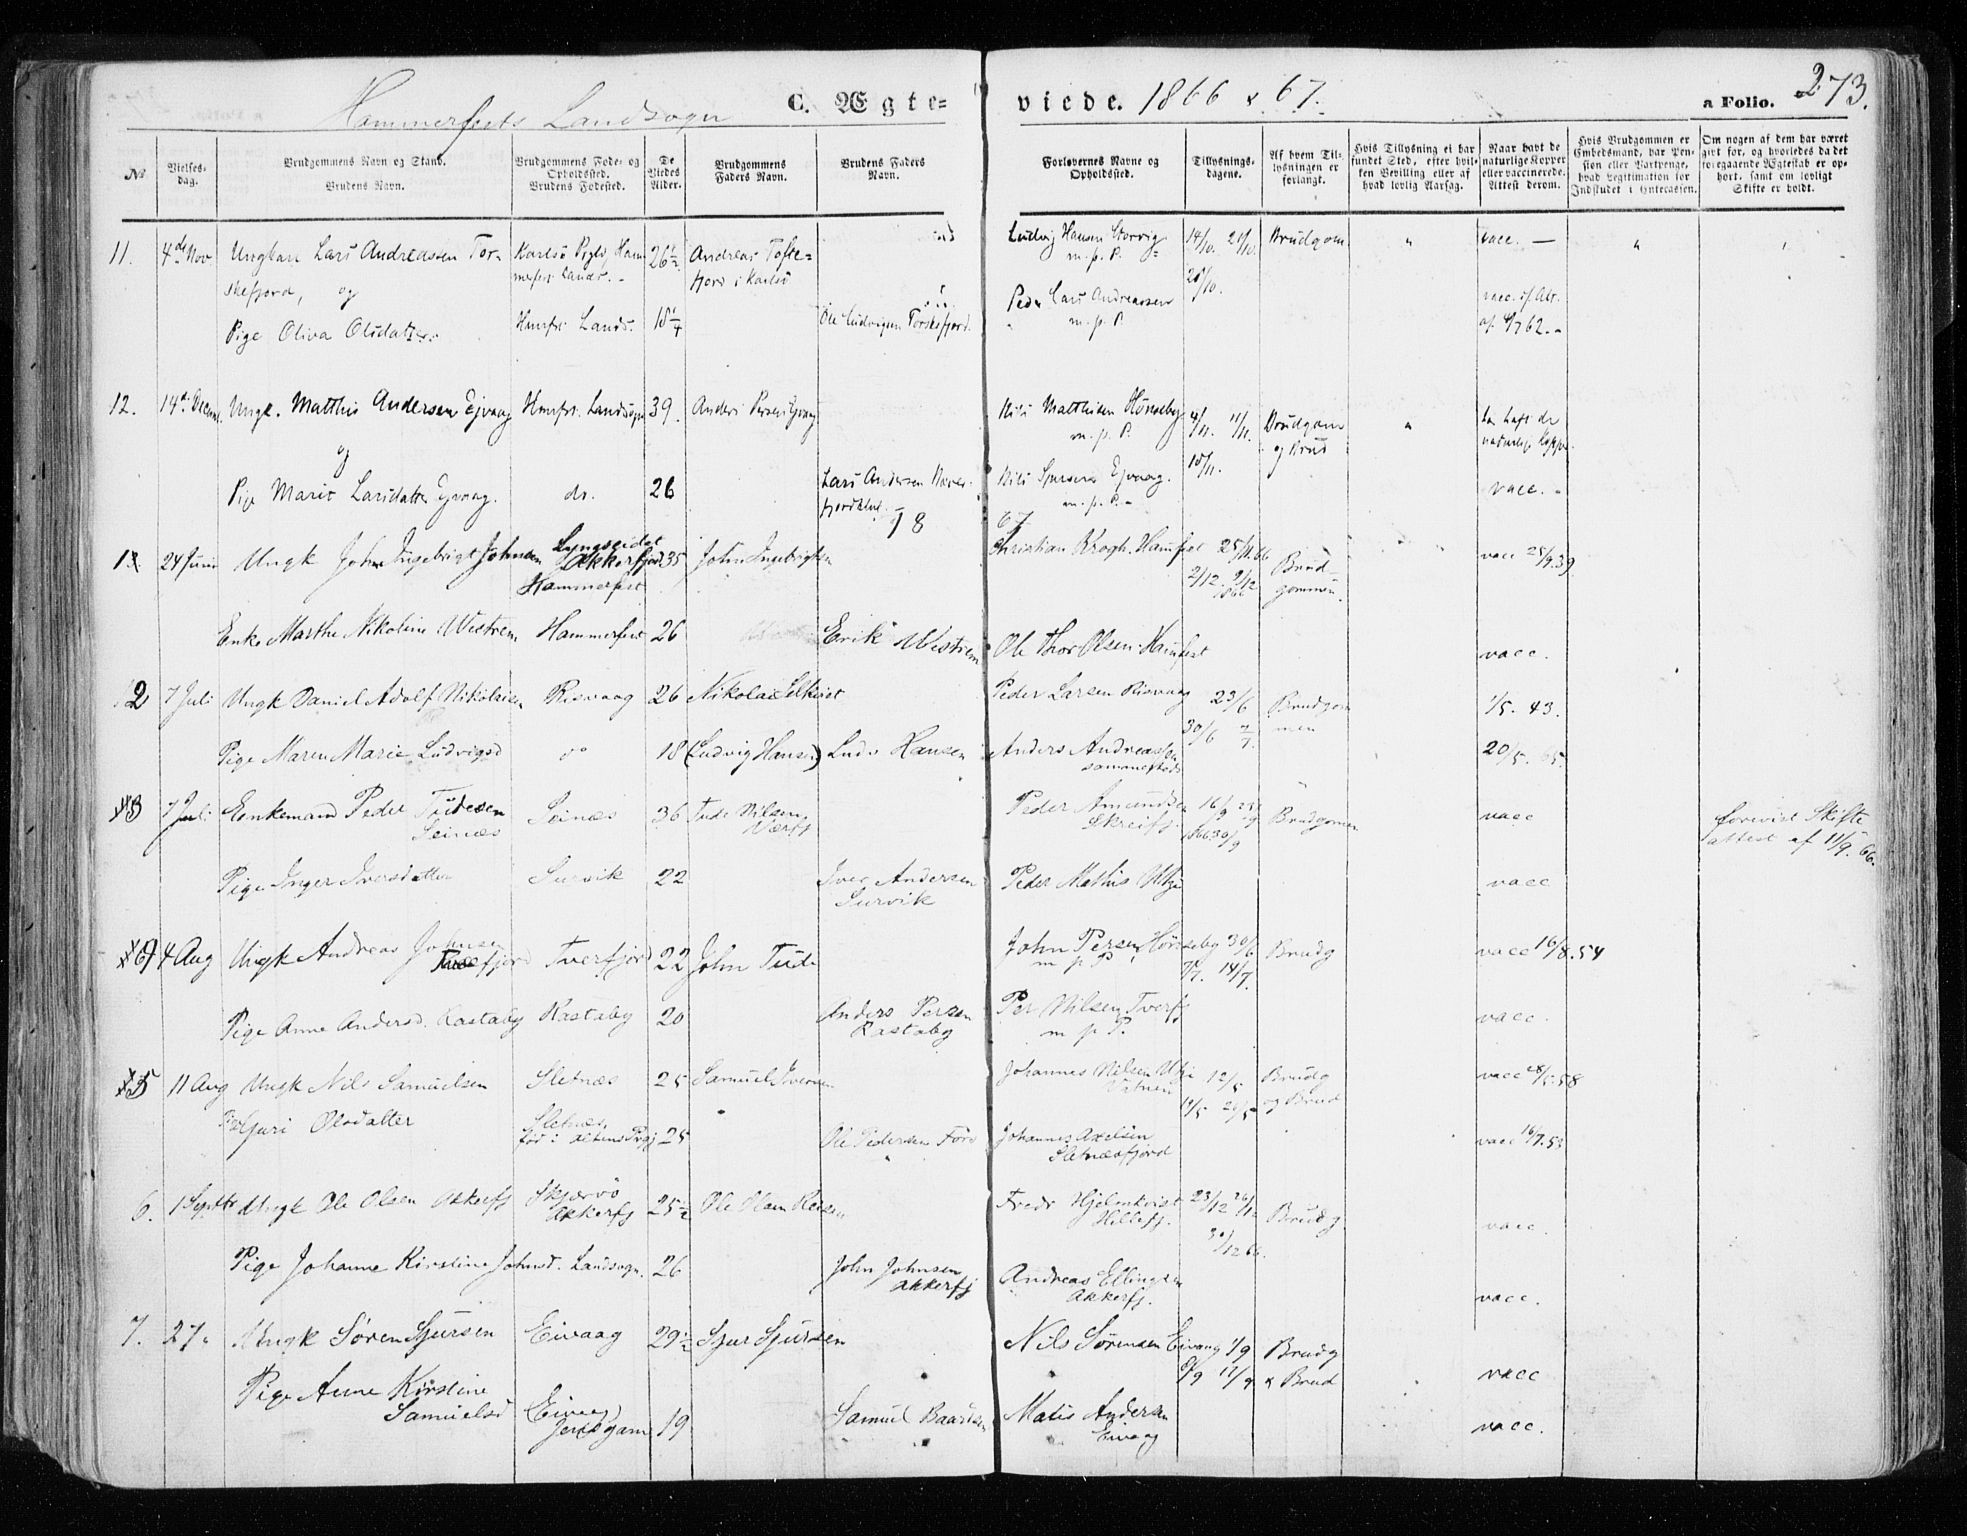 Hammerfests Landsogn C. Ægte= viede. 1866 & 67. a Folio. 273.
No
Vielses-dag.
Brudgommens Navn og Stand.
Brudens Navn.
Brudgommens Føde- og Opholdssted.
Brudens Fødested.
De Viedes Alder.
Brudgommens Faders Navn.
Brudens Faders Navn.
Forlovernes Navne og Opholdssted.
Tillysnings-dagene.
Af hvem Tillysningen er forlangt.
Hvis Tillysning ei har fundet Sted, efter hvilken Bevilling eller af hvad lovlig Aarsag.
Naar havt de naturlige Kopper eller vaccinerede. Attest derom.
Hvis Brudgommen er Embedsmand, har Pension eller Vartpenge, hvad Legitimation for Indskudet i Enkecassen.
Om nogen af dem har været gift før, og hvorledes da det foregaaende Ægteskab er ophørt, samt om lovligt Skifte er holdt.
11. 4de Nov Ungkarl Lars Andreassen Tor- Karlsö 26½ Andreas Tofte= Ludvig Hansen Storvig 14/10. 21/10. Brudgom. " vacc. — "
skefjord, og fjord i Karlsö m. p. P. 28/10.
Pige Oliva Olsdatter Hmrfst Lands. 18¼ Ole Ludvigsen Torskefjord. Peder Lars Andreassen m. p. P. vacc.
12. 14de Decem. Ungk. Matthis Andersen Ejvaag Hmrfst. Landsogn 39. Anders Persen Ejvaag Nils Matthisen Hönseby 4/11. 11/11. Brudgom "
og m. p. P. 18/11. og Brud
Pige Marit Larsdatter Ejvaag. do. 26 Lars Andersen Nils Sjursen Ejvaag. m. p. P. vacc.
18 67
1. 24 Juni Ungk John Ingebrigt Johnsen Lyngseidet Akkerfjord Hammerfest 35 John Ingebrigtsen Christian Krogh. Hamfest 25/11.66 2/12. 9/12 1866 Brud-gommen. vacc 25/9.39
Enke Marthe Nikoline Westrem Hammerfest 26 Erik Westrem Ole Thor Olsen. Hamfest vacc.
2 7 Juli Ungk Daniel Adolf Nikolaisen Risvaag 26 Nikolai Peder Larsen Risvaag 23/6 Brudgom 1/5. 43.
30/6 7/7. men
Pige Maren Marie Ludvigsd do 18 (Ludvig Hansen) Ludv Hansen Anders Andreassen sammesteds 20/5. 65.
3 7 Juli Enkemand Peder Tudesen Seinæs Seinæs 36 Tude Nilsen Værfj Peder Amundsen Skreifj. 16/9 23/9 1866 30/9 Brudgomen vacc forevist Skifte attest af 11/9. 66.
Pige Inger Iversdatter Survik 22 Iver Andersen Survik Peder Mathis vacc
4 Aug Ungk Andreas Johnsen Tverfjord 22 John Tude John Persen Hönseby 30/6 Brudg vacc 16/8.54
m p P 7/7. 14/7.
Pige Anne Andersd. Rastaby Rastaby 20 Anders Persen Rastaby Per Nilsen Tverfj m p P. vacc.
5 11 Aug Ungk Nils Samuelsen Sletnæs 25 Samuel Iversen Johannes Nilsen 12/5 Brudg vacc
19/5 og Brud
Pige Guri Olsdatter Sletnæs, fød i Altens Prgj 25 Ole Pedersen Johannes Axelsen Sletnæsfjord vacc 16/7.53
6. 1 Septbr Ungk Ole Olsen Akkerfj Skjervö Akkerfj 25½ Ole Olsen Fredr Hjelmkvist Hillefj. 23/12 26/12 30/12 66. Brudg vacc.
Pige Johanne Kirstine Johnsd. Landsogn. 26 John Johnsen Akkerfj Andreas Ellingsen Akkerfj. vacc.
7. 27 " Ungk Sören Sjursen Eivaag 29½ Sjur Sjursen Nils Sörensen Eivaag 1/9 Brudg
8/9 & Brud vacc
Pige Anne Kirstine Samuelsd Eivaag 19 Samuel Baardsen Matis Andersen Eivaag vacc.